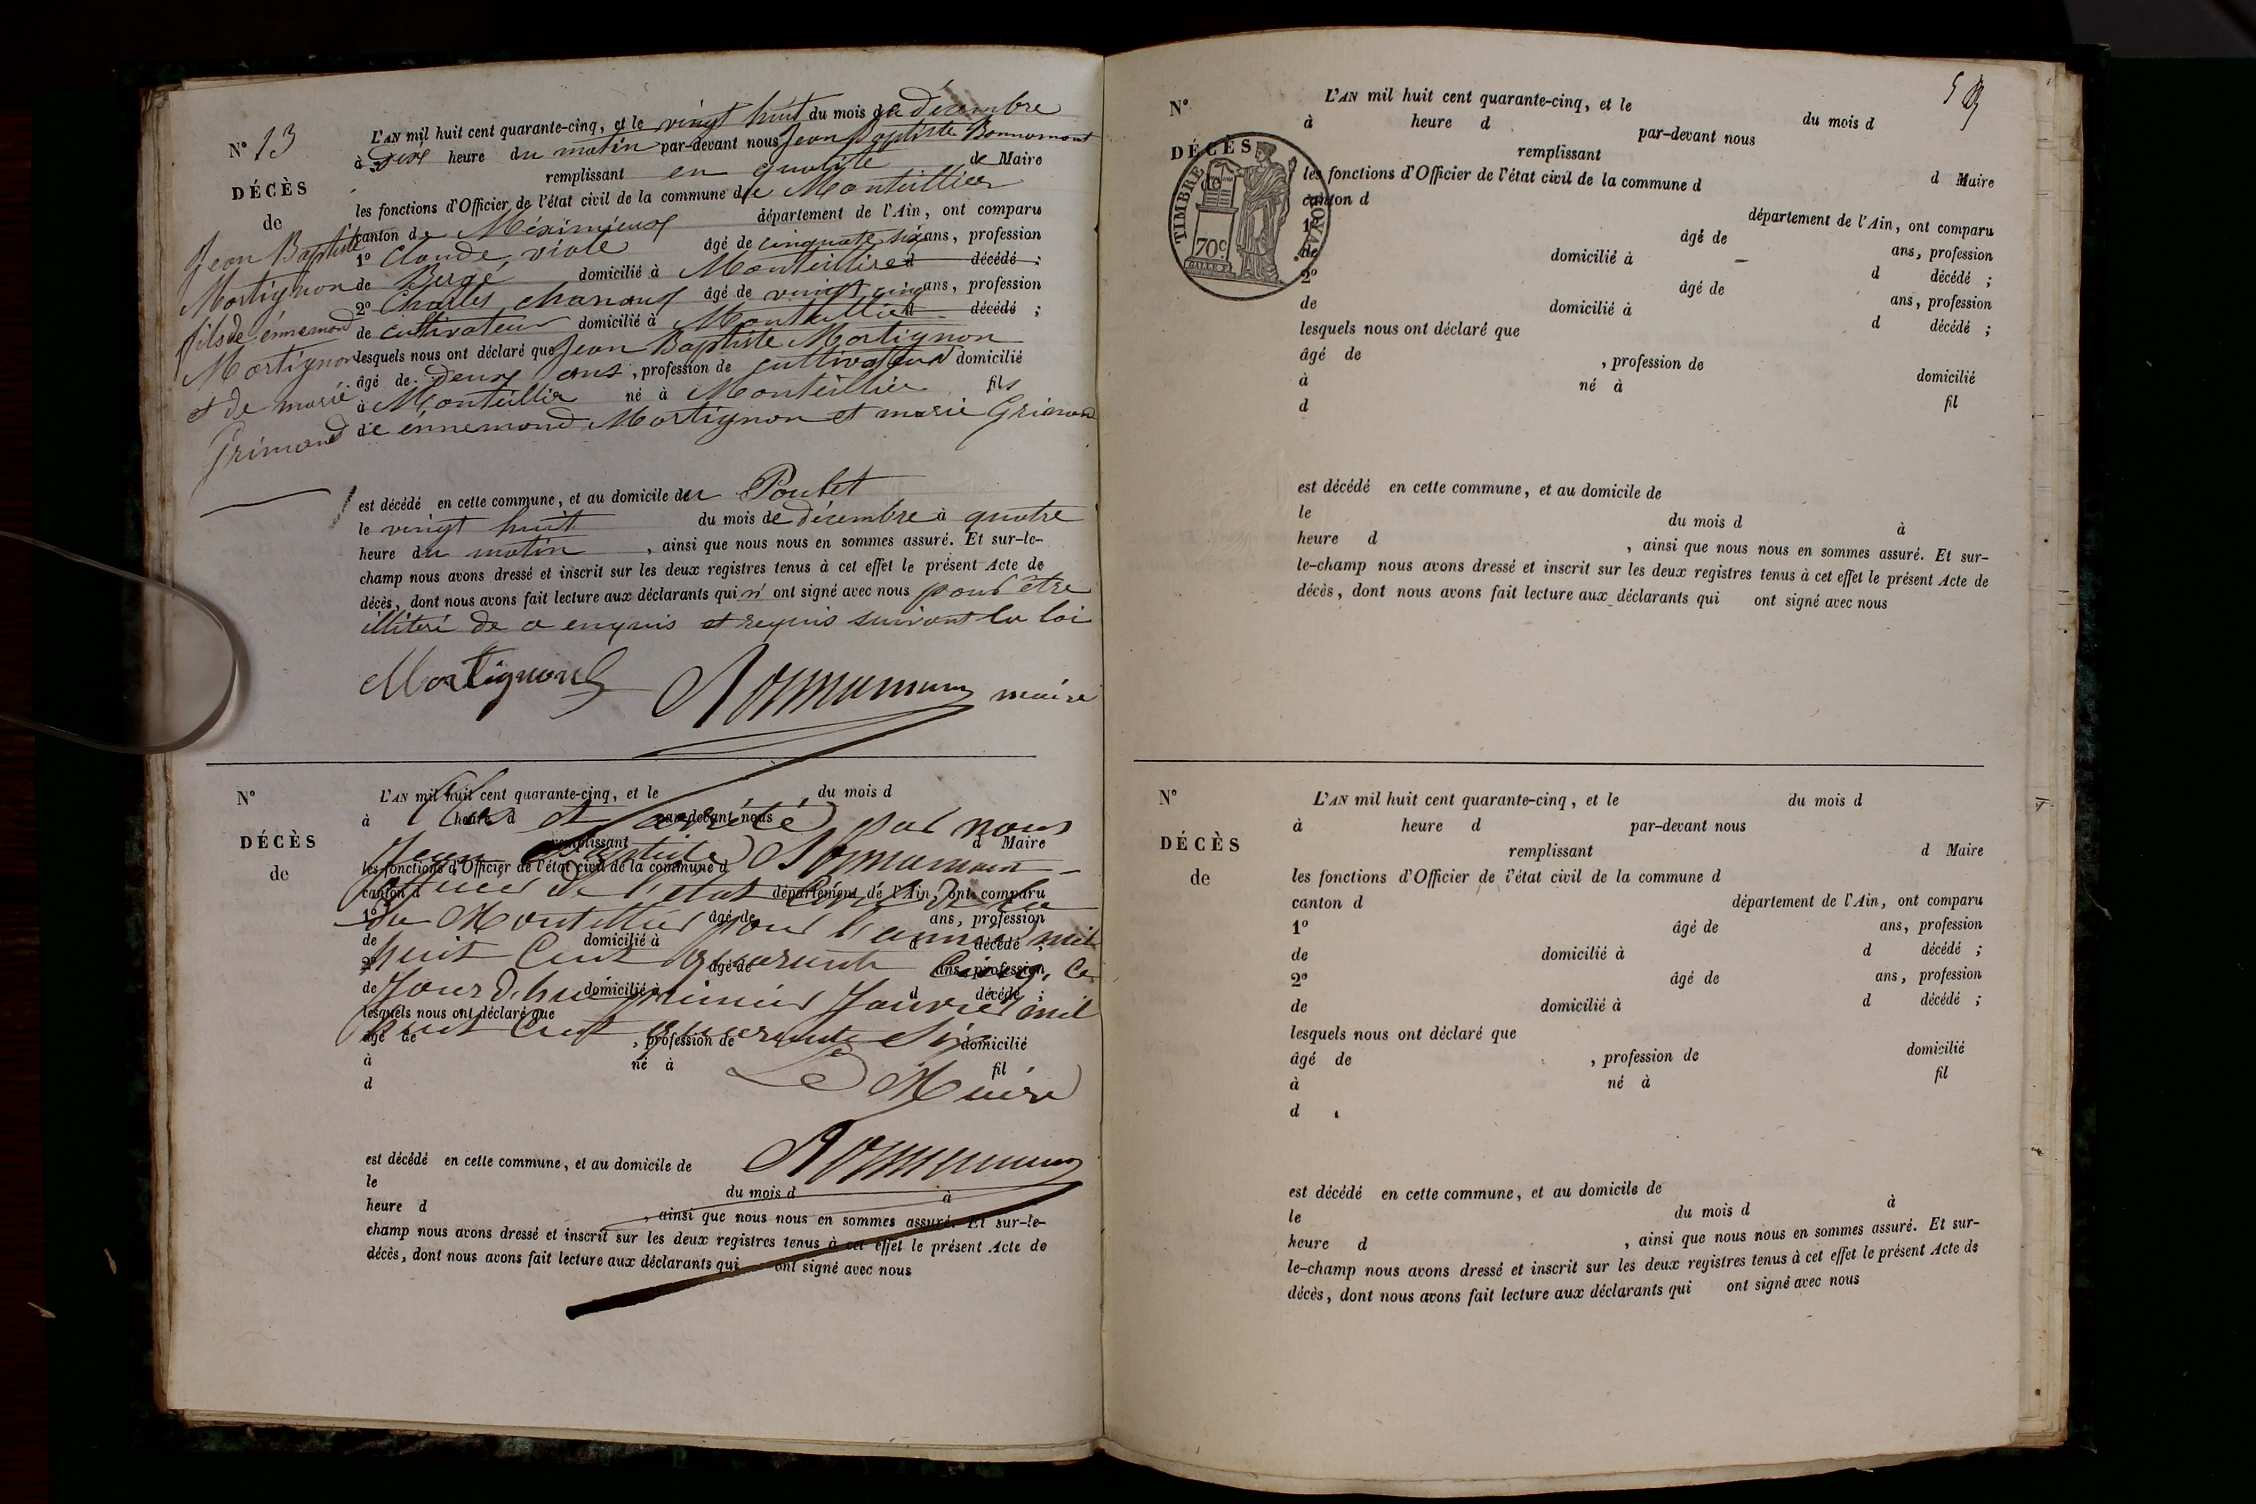 N° 13
DÉCÈS
de
Jean Baptiste
Mortignon
fils de énnemond
Mortignon
et de marie
Grimand
L'AN mil huit cent quarante-cinq, et le vingt huit du mois de décembre
à dix heure du matin par-devant nous Jean Baptiste Bonnamont
remplissant en qualité de Maire
les fonctions d'Officier de l'état civil de la commune de Montellier
canton de Méximieux département de l'Ain, ont comparu
1° Claude viole âgé de cinquate six ans, profession
de Bergé domicilié à Montellier d décédé ;
2° Charles âgé de vingt cinq ans, profession
de cultivateur domicilié à Montellier d décédé ;
lesquels nous ont déclaré que Jean Baptiste Mortignon
âgé de deux ans, profession de cultivateur domicilié
à Montellier né à Montellier fils
de énnemond Mortignon et marie Grimand
est décédé en cette commune, et au domicile du Poulet
le vingt huit du mois de décembre à quatre
heure du matin, ainsi que nous nous en sommes assuré. Et sur-le-
champ nous avons dressé et inscrit sur les deux registres tenus à cet effet le présent Acte de
décès, dont nous avons fait lecture aux déclarants qui n' ont signé avec nous pour être
illiteré de a enquis et requis suivant la loi
Mortignon
maire
N°
DÉCÈS
de
L'AN mil huit cent quarante-cinq, et le du mois d
à heure d par-devant nous
remplissant d Maire
les fonctions d'Officier de l'état civil de la commune d
canton d département de l'Ain, ont comparu
1° âgé de ans, profession
de domicilié à d décédé ;
2° âgé de ans, profession
de domicilié à d décédé ;
lesquels nous ont déclaré que
âgé de , profession de domicilié
à né à fil
d
Clos et arrété par nous
Jean Baptiste Bonnamont
officier de l'état Civil de la
de Montellier pour l'année mil
huit Cent quarante Cinq, Ce
Jourd'hui premier Janvier mil
huit Cent quarante Six
Le Maire
est décédé en cette commune, et au domicile de
le du mois d à
heure d , ainsi que nous nous en sommes assuré. Et sur-le-
champ nous avons dressé et inscrit sur les deux registres tenus à cet effet le présent Acte de
décès, dont nous avons fait lecture aux déclarants qui ont signé avec nous
N°
DÉCÈS
TIMBRE ROYAL
70c
L'AN mil huit cent quarante-cinq, et le du mois d
à heure d par-devant nous
remplissant d Maire
les fonctions d'Officier de l'état civil de la commune d
canton d département de l'Ain, ont comparu
1° âgé de ans, profession
de domicilié à d décédé ;
2° âgé de ans, profession
de domicilié à d décédé ;
lesquels nous ont déclaré que
âgé de , profession de domicilié
à né à fil
d
est décédé en cette commune, et au domicile de
le du mois d à
heure d , ainsi que nous nous en sommes assuré. Et sur-
le-champ nous avons dressé et inscrit sur les deux registres tenus à cet effet le présent Acte de
décès, dont nous avons fait lecture aux déclarants qui ont signé avec nous
N°
DÉCÈS
de
L'AN mil huit cent quarante-cinq, et le du mois d
à heure d par-devant nous
remplissant d Maire
les fonctions d'Officier de l'état civil de la commune d
canton d département de l'Ain, ont comparu
1° âgé de ans, profession
de domicilié à d décédé ;
2° âgé de ans, profession
de domicilié à d décédé ;
lesquels nous ont déclaré que
âgé de , profession de domicilié
à né à fil
d
est décédé en cette commune, et au domicile de
le du mois d à
heure d , ainsi que nous nous en sommes assuré. Et sur-
le-champ nous avons dressé et inscrit sur les deux registres tenus à cet effet le présent Acte de
décès, dont nous avons fait lecture aux déclarants qui ont signé avec nous